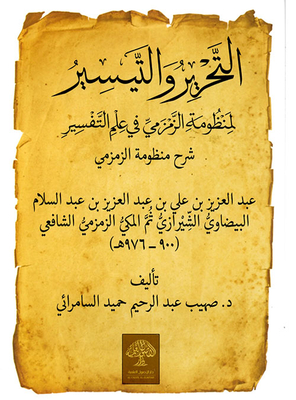 التَّحْرِيرُ وَالتَّيْسِيرُ
لِمَنْظُومَةِ الزَّمْزَمِيِّ فِي عِلْمِ التَّفْسِيرِ
شرح منظومة الزمزمي
عبد العزيز بن علي بن عبد العزيز بن عبد السلام
البيضاويُّ الشِّيْرَازِيُّ ثُمَّ المكيُّ الزمزميُّ الشافعي
(٩٠٠ – ٩٧٦هـ)
تأليف
د. صهيب عبد الرحيم حميد السامرائي